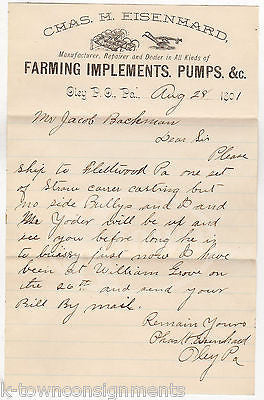 CHAS. H. EISENHARD,
Manufacturer, Repairer and Dealer in All Kinds of
FARMING IMPLEMENTS, PUMPS, &c.
Oley P. O. Pa. Aug 28 1901
Mr Jacob Backman
Dear Sir
Please
ship to Fleetwood Pa one set
of Straw carrer casting but
no side Pullys and I and
Mr Yoder will be up and
see you before long he is
to buissy just now I have
been at William Grove on
the 26th and send your
Bill By mail.
Remain Yours
Chas H Eisenhard
Oley Pa
k-townconsignments